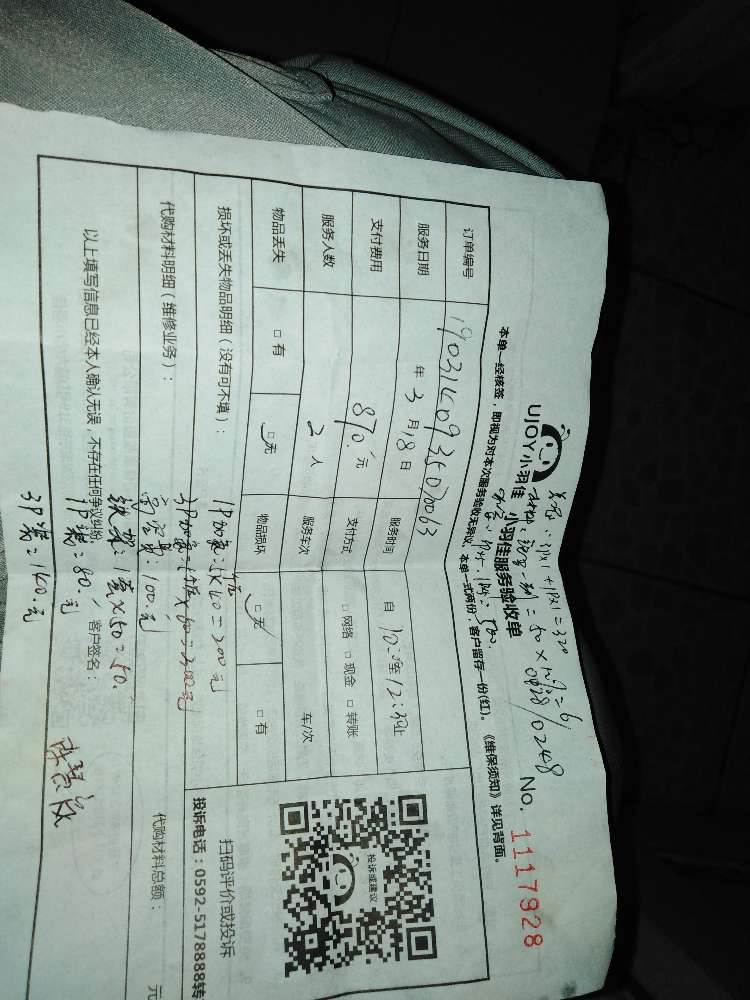 UJOY小羽佳 小羽佳服务验收单
No. 1117928
本单一经核签，即视为对本次服务验收无异议。本单一式两份，客户留存一份(红)。《维保须知》详见背面。
订单编号 1903140935070063
服务日期 年 3 月 18 日 服务时间 自 10:
支付费用 870.元 支付方式 □ 网络 □ 现金 □ 转账
服务人数 2 人 服务车次 车/次
物品丢失 □ 有 □ 无 物品损坏 □ 无 □ 有
损坏或丢失物品明细（没有可不填）：
1P加氟:5×40=200元
代购材料明细（维修业务）：
高空费:100.元
1套×50=50.
代购材料总额： 元
以上填写信息已经本人确认无误，不存在任何争议纠纷。 客户签名：
1P装=80.元
3P装=140.元
投诉或建议
扫码评价或投诉
投诉电话：0592-5178888转